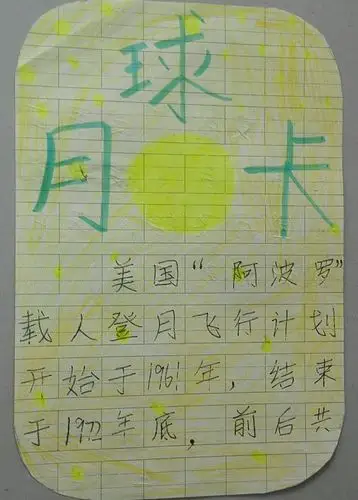 月球卡
美国“阿波罗”
载人登月飞行计划
开始于1961年，结束
于1972年底，前后共